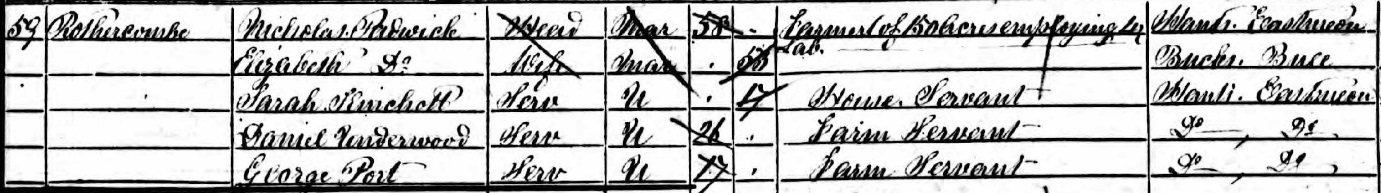 59 Rothercombe Nicholas Padwick Head Mar 58 Farmer of acres employing
Elizabeth Do Wife Mar 55 Lab. Bucks.
Sarah Serv U 17 House Servant Hants. Eastmeon
Daniel Underwood Serv U 26 Farm Servant Do, Do
George Port Serv U 17 Farm Servant Do, Do